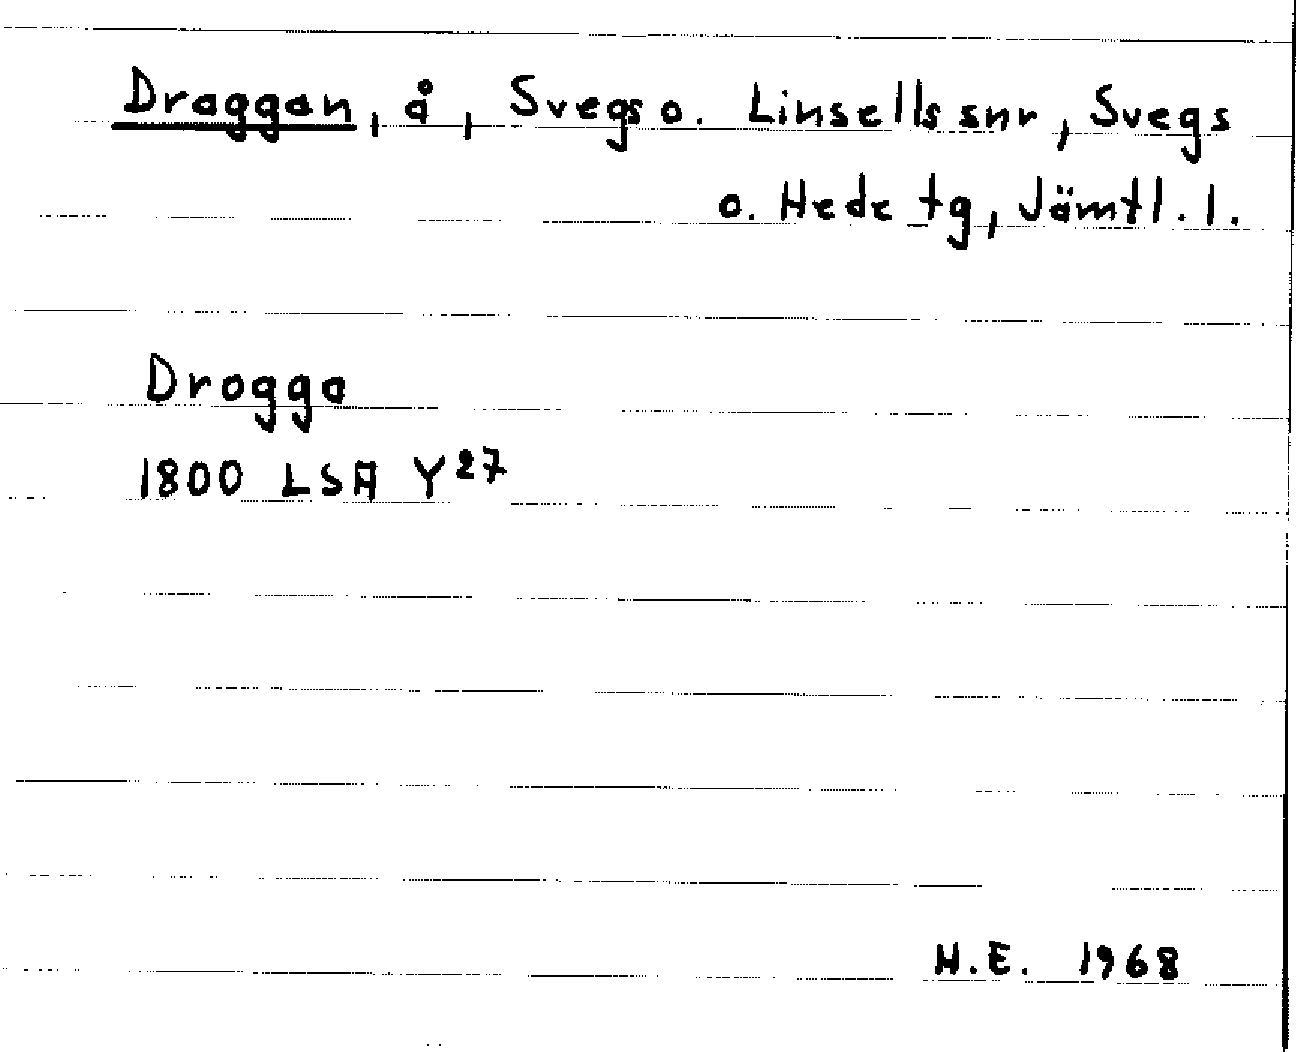 Draggan, å, Svegs o. Linsells snr, Svegs
o. Hede tg, Jämtl. l.
Drogga
1800 LSA Y27
H.E. 1968